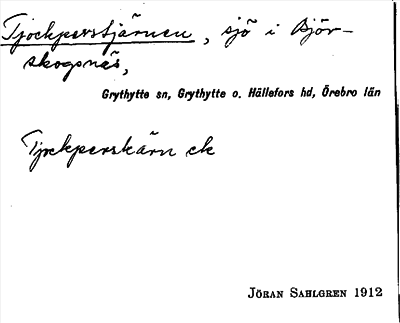 Tjockperstjärnen, sjö i Björ-
skogsnäs,
Grythytte sn, Grythytte o. Hällefors hd, Örebro län
Tjockperskärn ek
JÖRAN SAHLGREN 1912